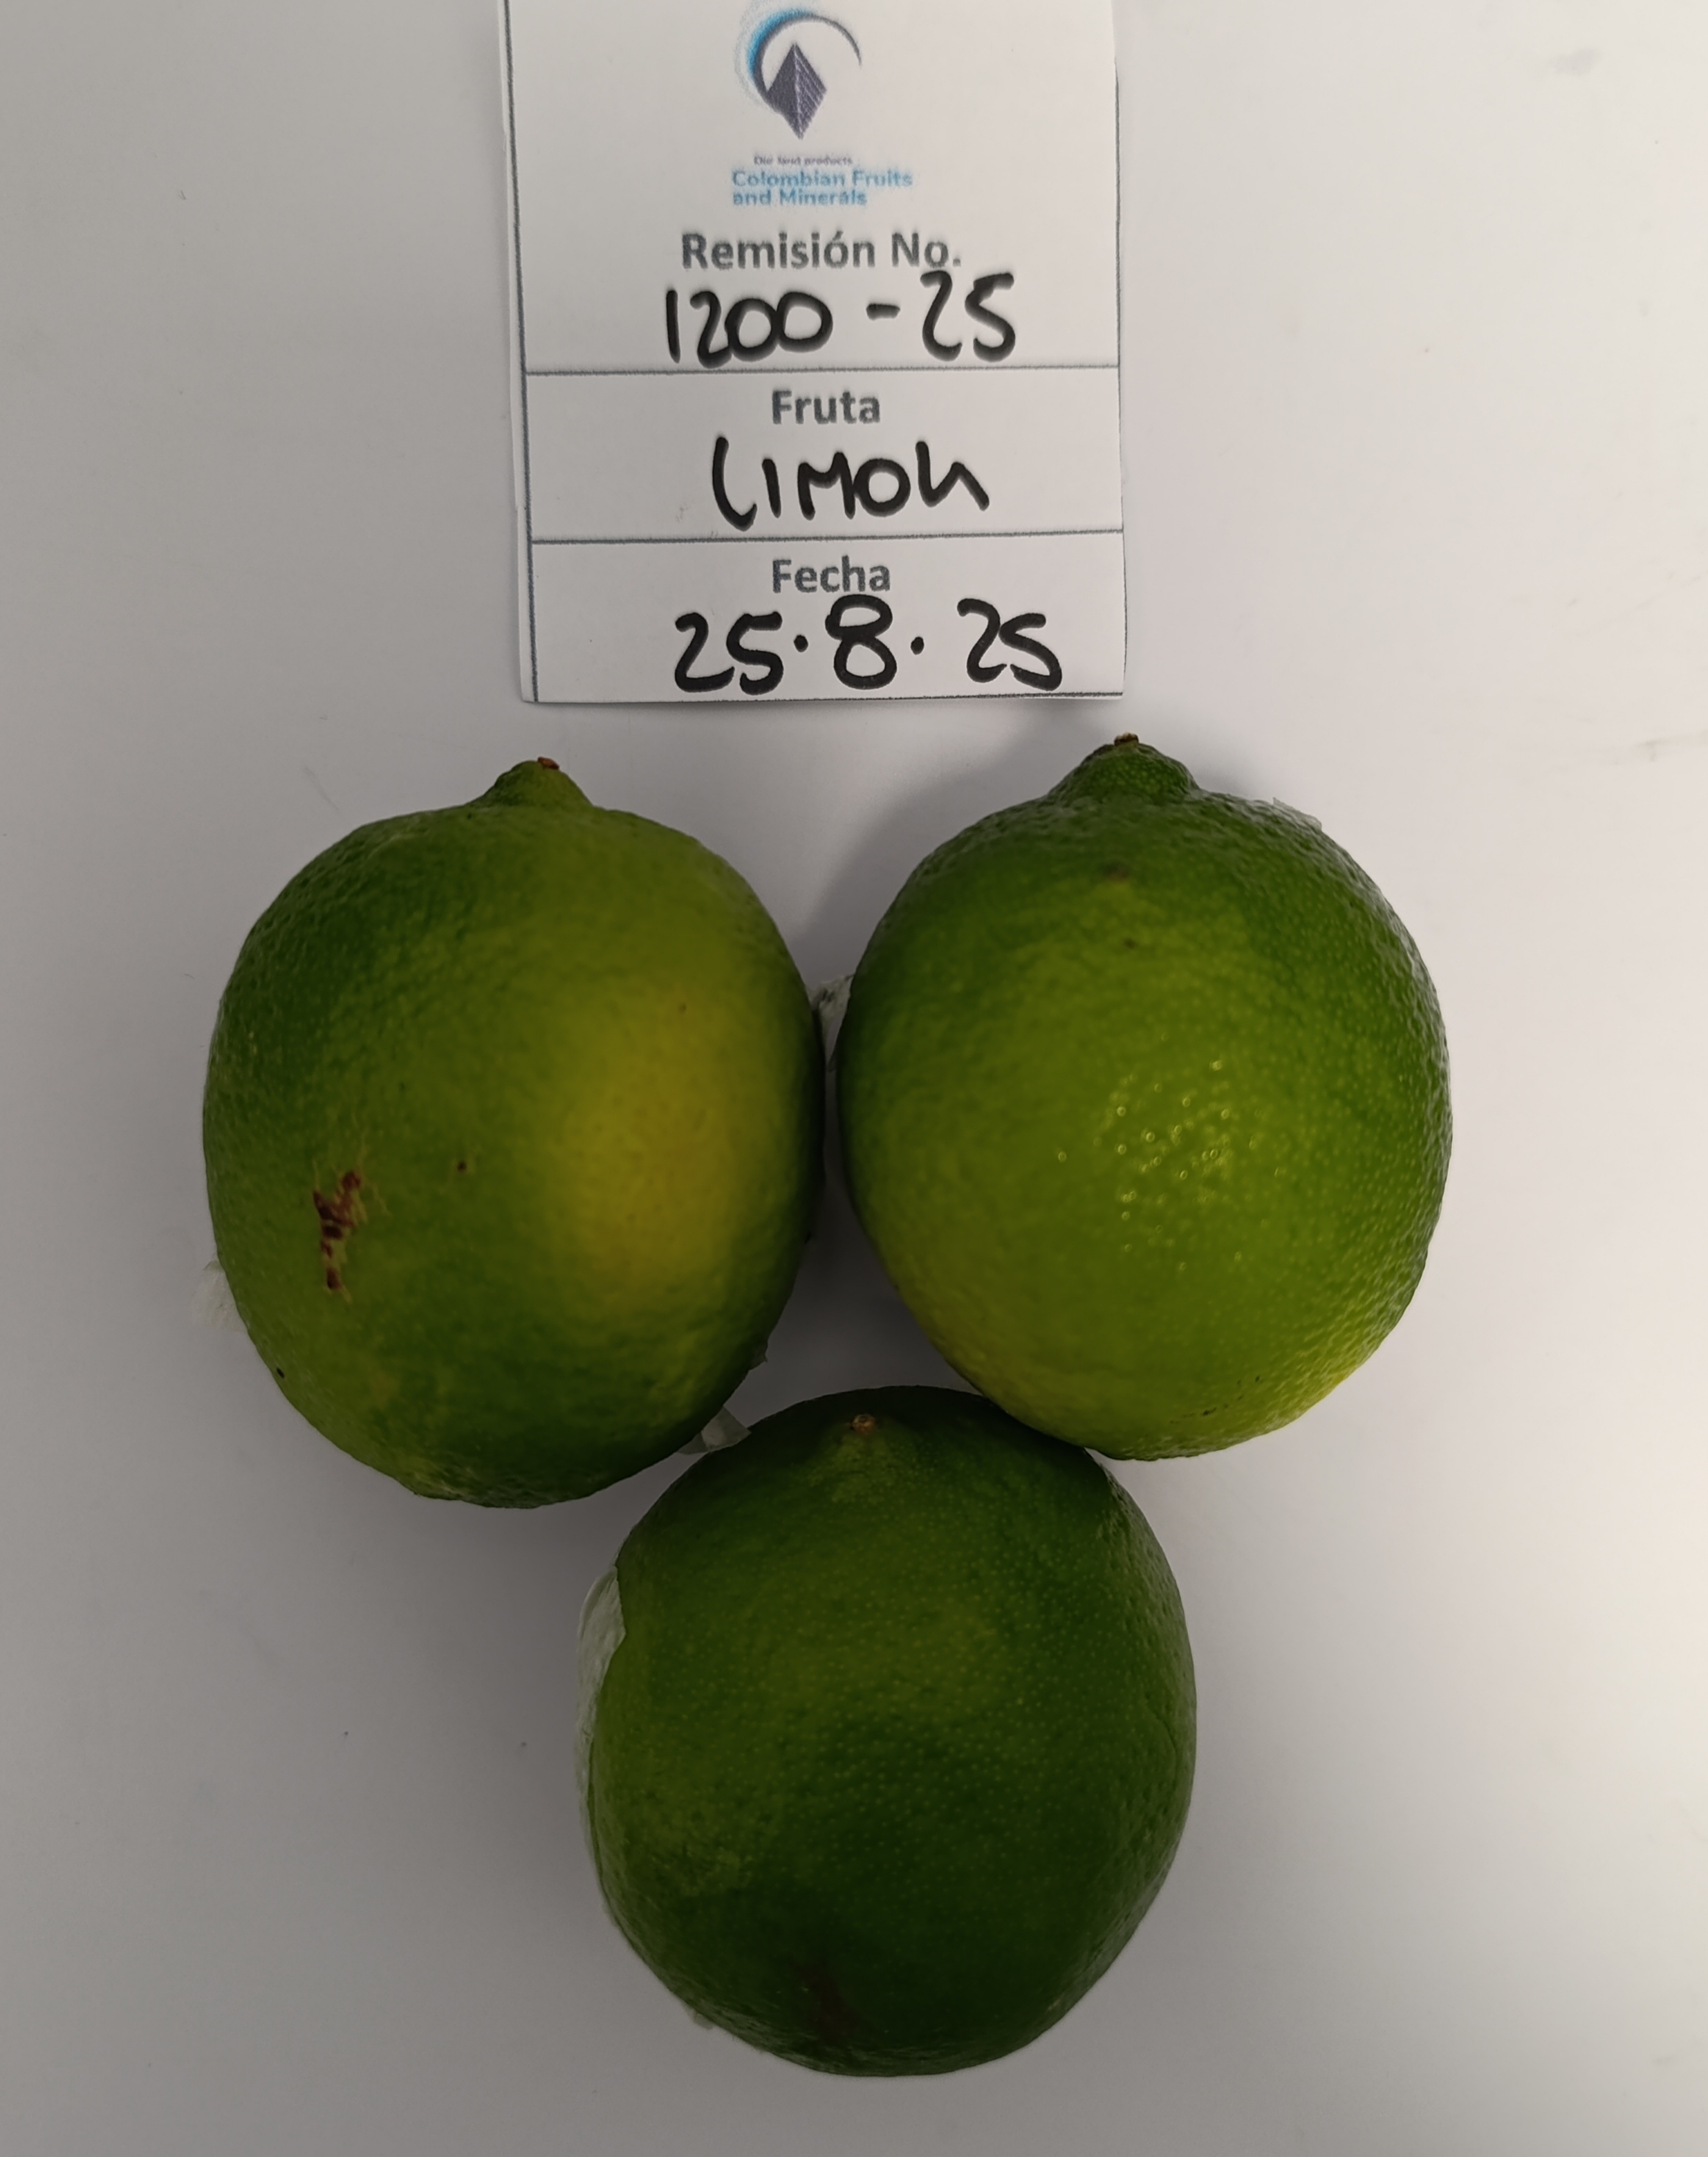 Our land products
Colombian Fruits
and Minerals
Remisión No.
1200-25
Fruta
LIMON
Fecha
25.8.25